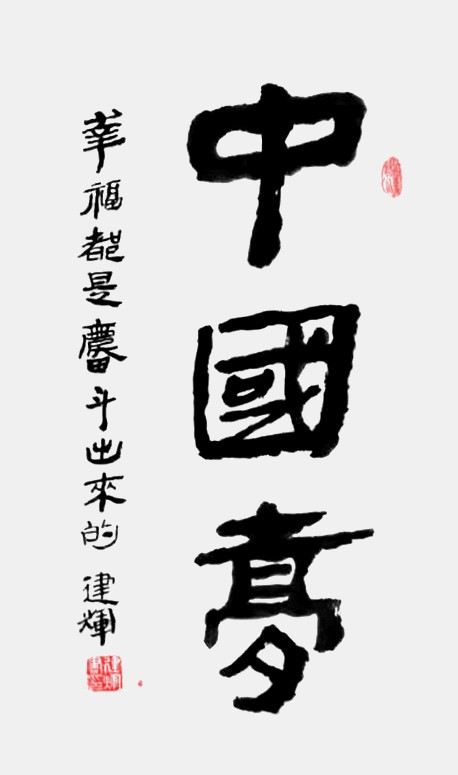 中國夢
幸福都是奮斗出來的 建輝